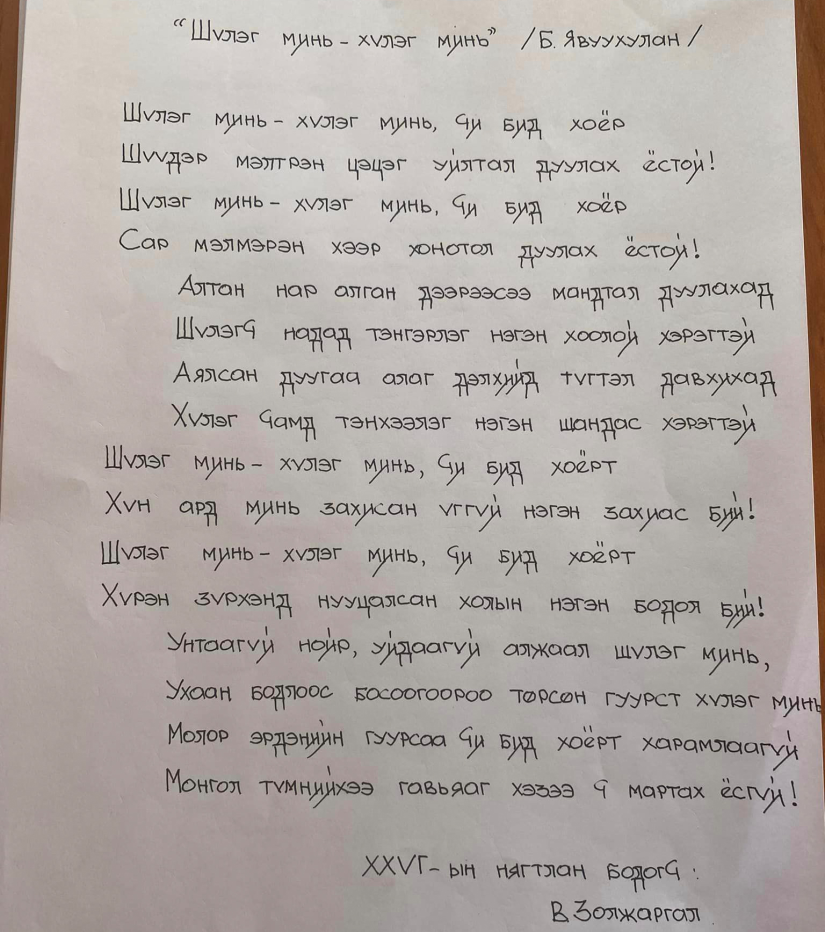 "Шүлэг минь - хүлэг минь" /Б. Явуухулан/
Шүлэг минь - хүлэг минь, Чи бид хоёр
Шүүдэр мэлтрэн цэцэг уйлтал дуулах ёстой!
Шүлэг минь - хүлэг минь, Чи бид хоёр
Сар мэлмэрэн хээр хонотол дуулах ёстой!
Алтан нар алган дээрээсээ мандтал дуулахад
Шүлэгч надад тэнгэрлэг нэгэн хоолой хэрэгтэй
Аялсан дуугаа алаг дэлхийд түгтэл давхихад
Хүлэг чамд тэнхээлэг нэгэн шандас хэрэгтэй
Шүлэг минь - хүлэг минь, Чи бид хоёрт
Хүн ард минь захисан үггүй нэгэн захиас бий!
Шүлэг минь - хүлэг минь, Чи бид хоёрт
Хүрэн зүрхэнд нууцалсан холын нэгэн бодол бий!
Унтаагүй нойр, уйдаагүй алжаал шүлэг минь,
Ухаан бодлоос босоогоороо төрсөн гуурст хүлэг минь
Молор эрдэнийн гуурсаа Чи бид хоёрт харамлаагүй
Монгол түмнийхээ гавьяаг хэзээ ч мартах ёсгүй!
ХХҮГ-ын нягтлан бодогч:
В.Золжаргал